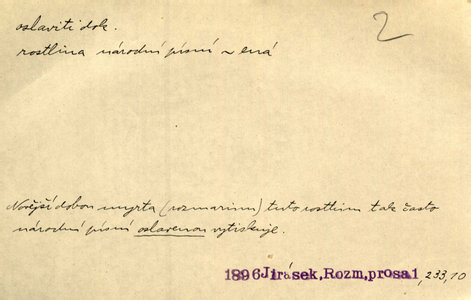 oslaviti dok.
2
rostlina národní písní ~ ená
Novější dobou myrta (rozmarinu) tuto rostlinu tak často
národní písní oslavenou vytiskuje.
1896 Jirásek, Rozm, prosa 1, 233, 10